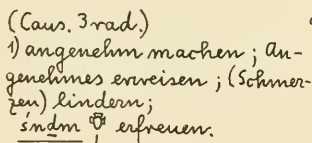 (Caus. 3 rad.)
1) angenehm machen; An-
genehmes erweisen; (Schmer-
zen) lindern;
śnḏm 𓄣 erfreuen.